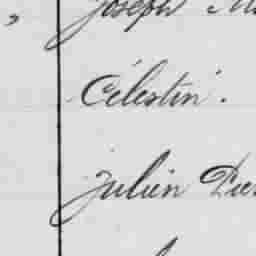 Joseph
Célestin.
Julien